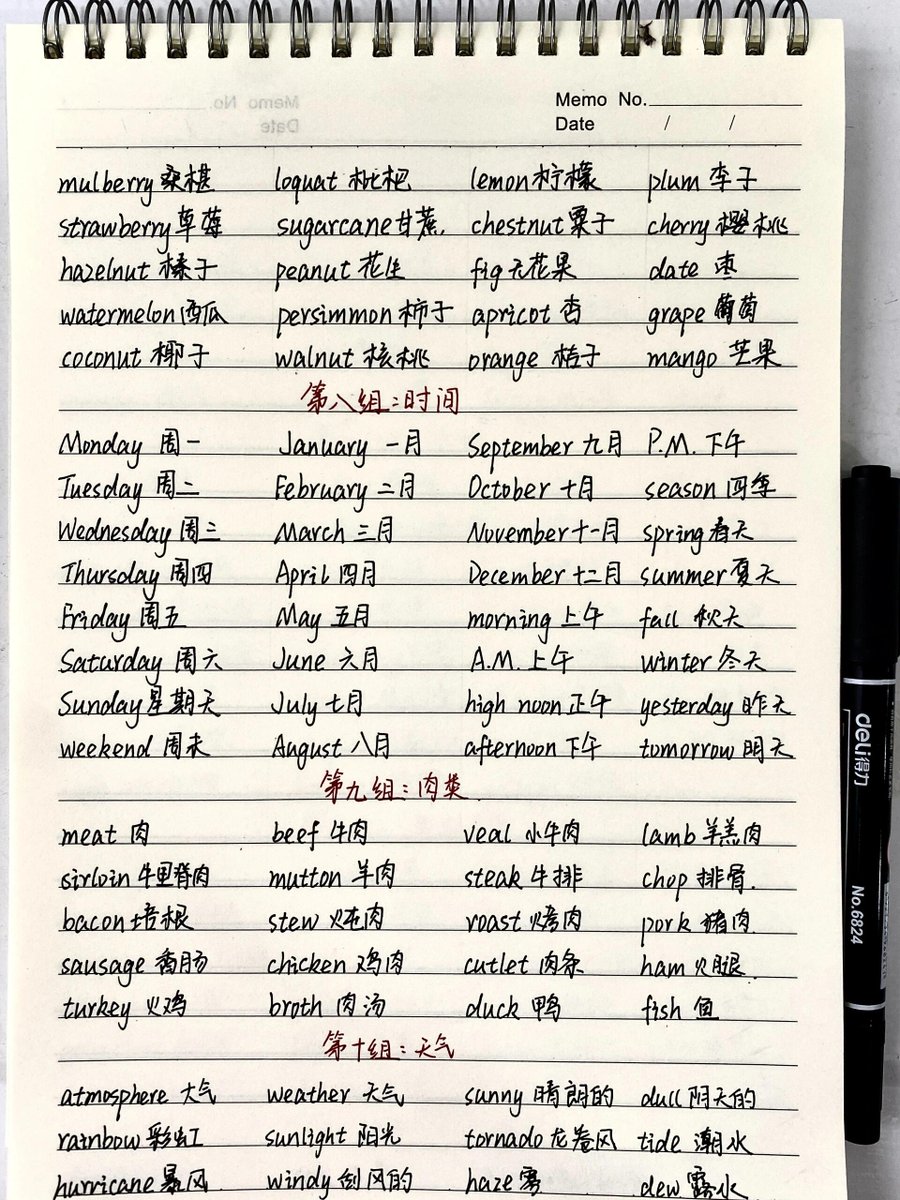 Memo No.
Date / /
mulberry 桑椹 loquat 枇杷 lemon 柠檬 plum 李子
strawberry 草莓 sugarcane 甘蔗, chestnut 栗子 cherry 樱桃
hazelnut 榛子 peanut 花生 fig 无花果 date 枣
watermelon 西瓜 persimmon 柿子 apricot 杏 grape 葡萄
coconut 椰子 walnut 核桃 orange 桔子 mango 芒果
第八组:时间
Monday 周一 January 一月 September 九月 P.M. 下午
Tuesday 周二 February 二月 October 十月 season 四季
Wednesday 周三 March 三月 November 十一月 spring 春天
Thursday 周四 April 四月 December 十二月 summer 夏天
Friday 周五 May 五月 morning 上午 fall 秋天
Saturday 周六 June 六月 A.M. 上午 winter 冬天
Sunday 星期天 July 七月 high noon 正午 yesterday 昨天
weekend 周末 August 八月 afternoon 下午 tomorrow 明天
第九组:肉类
meat 肉 beef 牛肉 veal 小牛肉 lamb 羊羔肉
sirloin 牛里脊肉 mutton 羊肉 steak 牛排 chop 排骨.
bacon 培根 stew 炖肉 roast 烤肉 pork 猪肉
sausage 香肠 chicken 鸡肉 cutlet 肉条 ham 火腿
turkey 火鸡 broth 肉汤 duck 鸭 fish 鱼
第十组:天气
atmosphere 大气 weather 天气 sunny 晴朗的 dull 阴天的
rainbow 彩虹 sunlight 阳光 tornado 龙卷风 tide 潮水
hurricane 暴风 windy 刮风的 haze 雾 dew 露水
deli 得力
No.6824